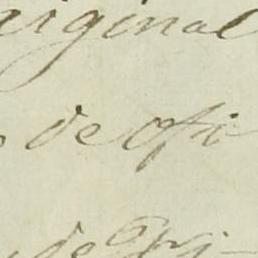 original
de ofi
de Pri